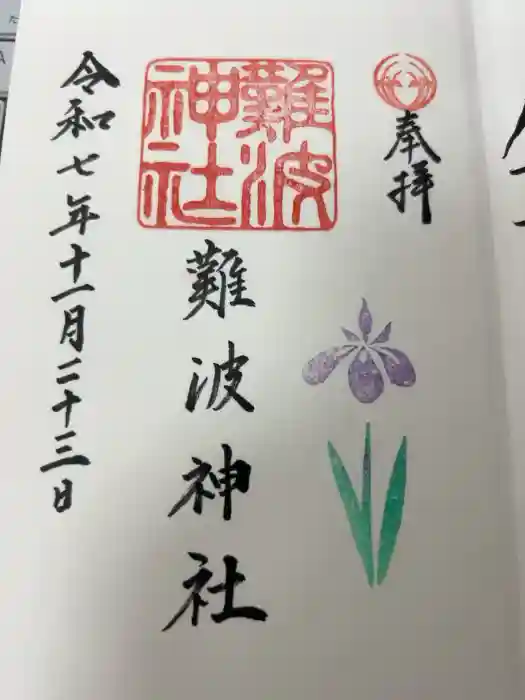 奉拝
難波神社
難波神社
令和七年十一月二十三日